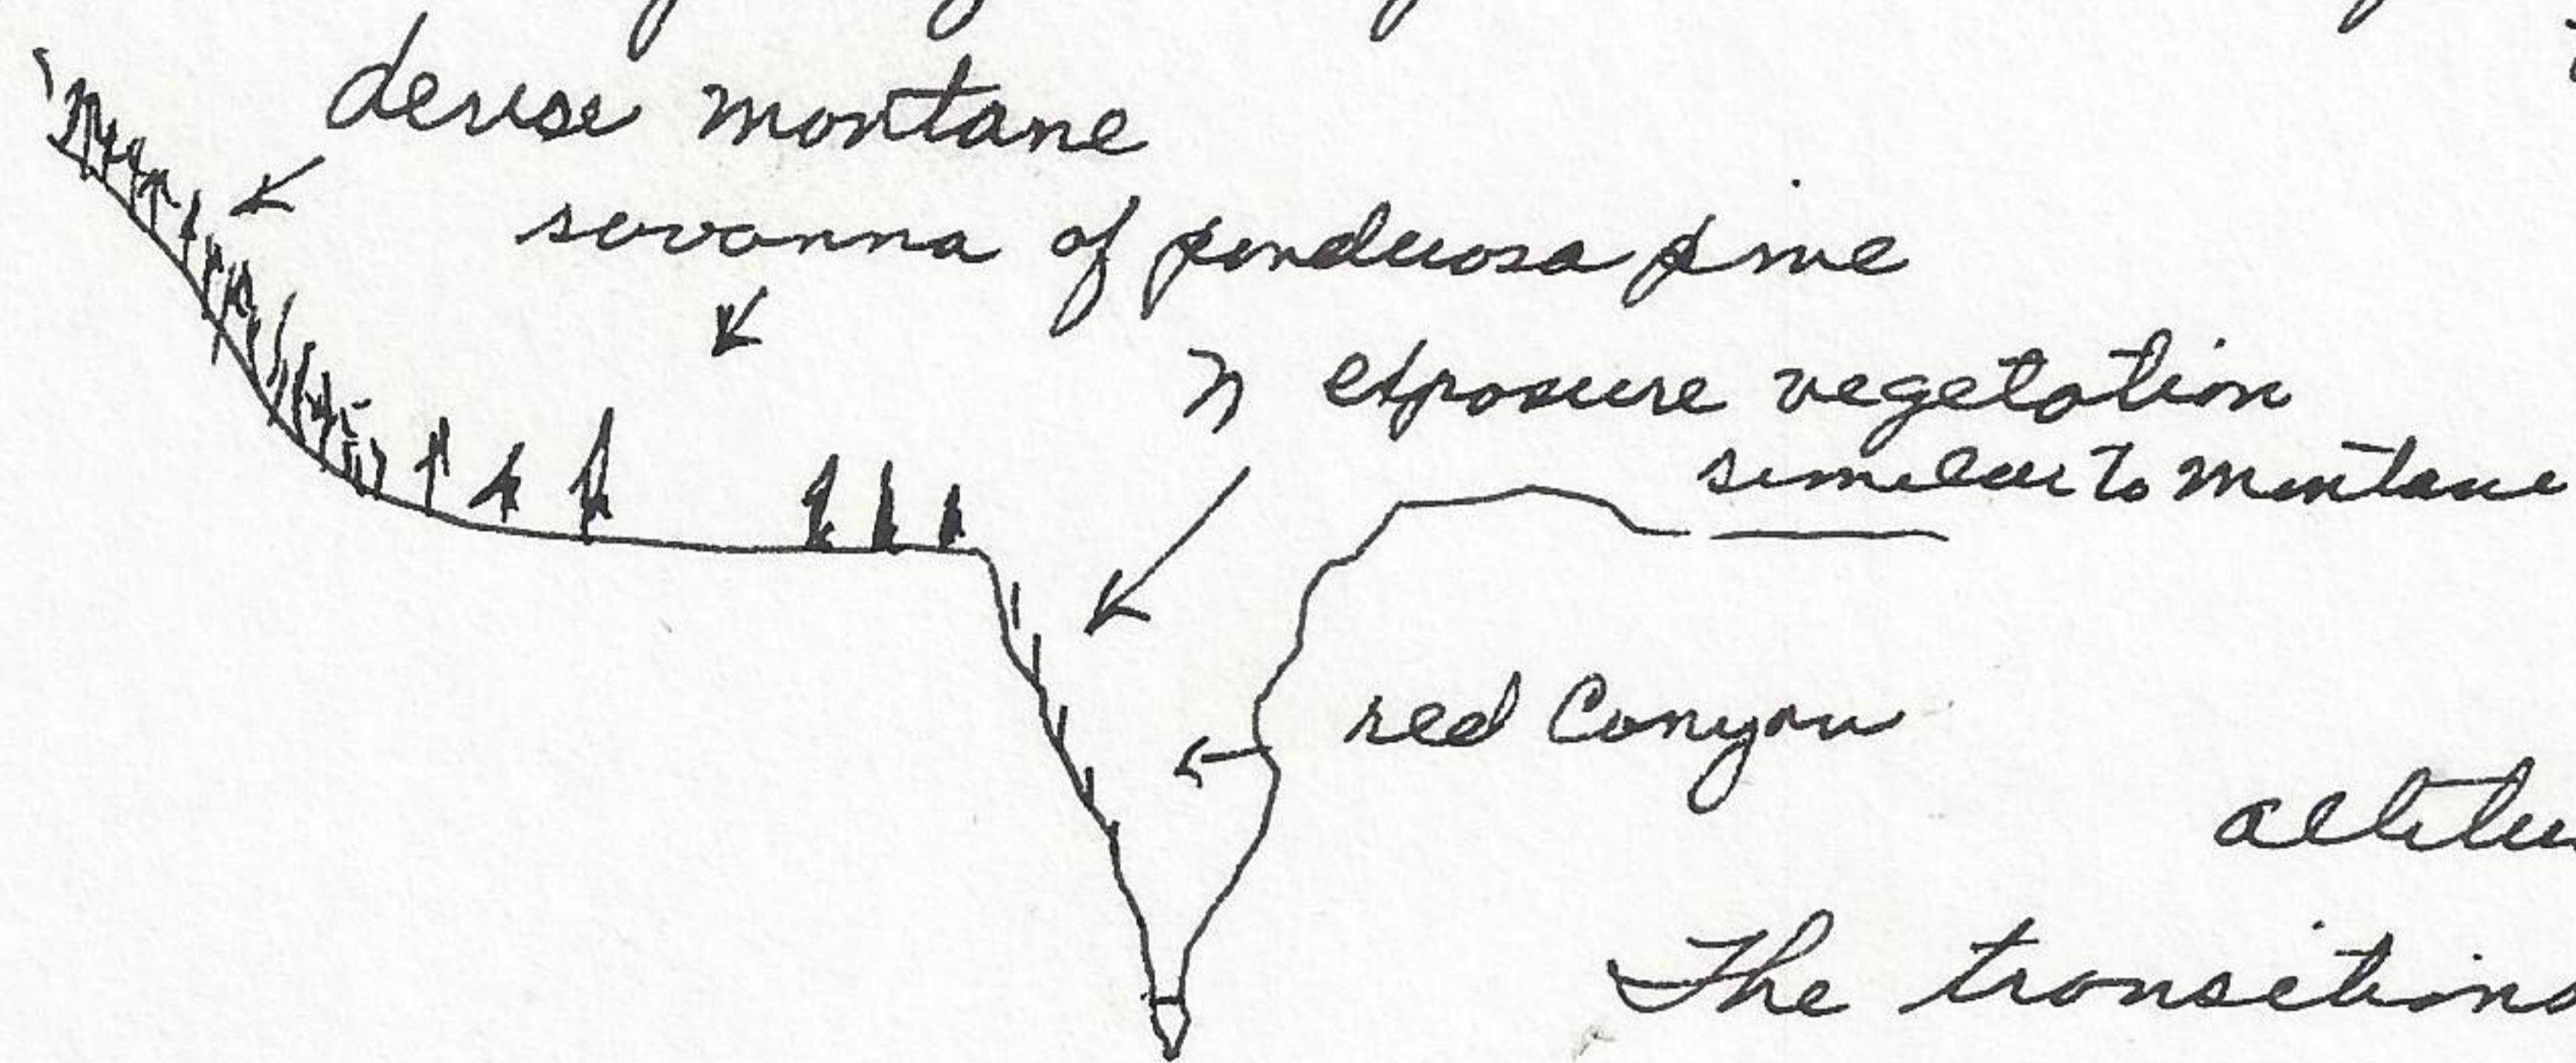 dense montane
savanna of ponderosa pine
n exposure vegetation
similar to montane
red Canyon
The